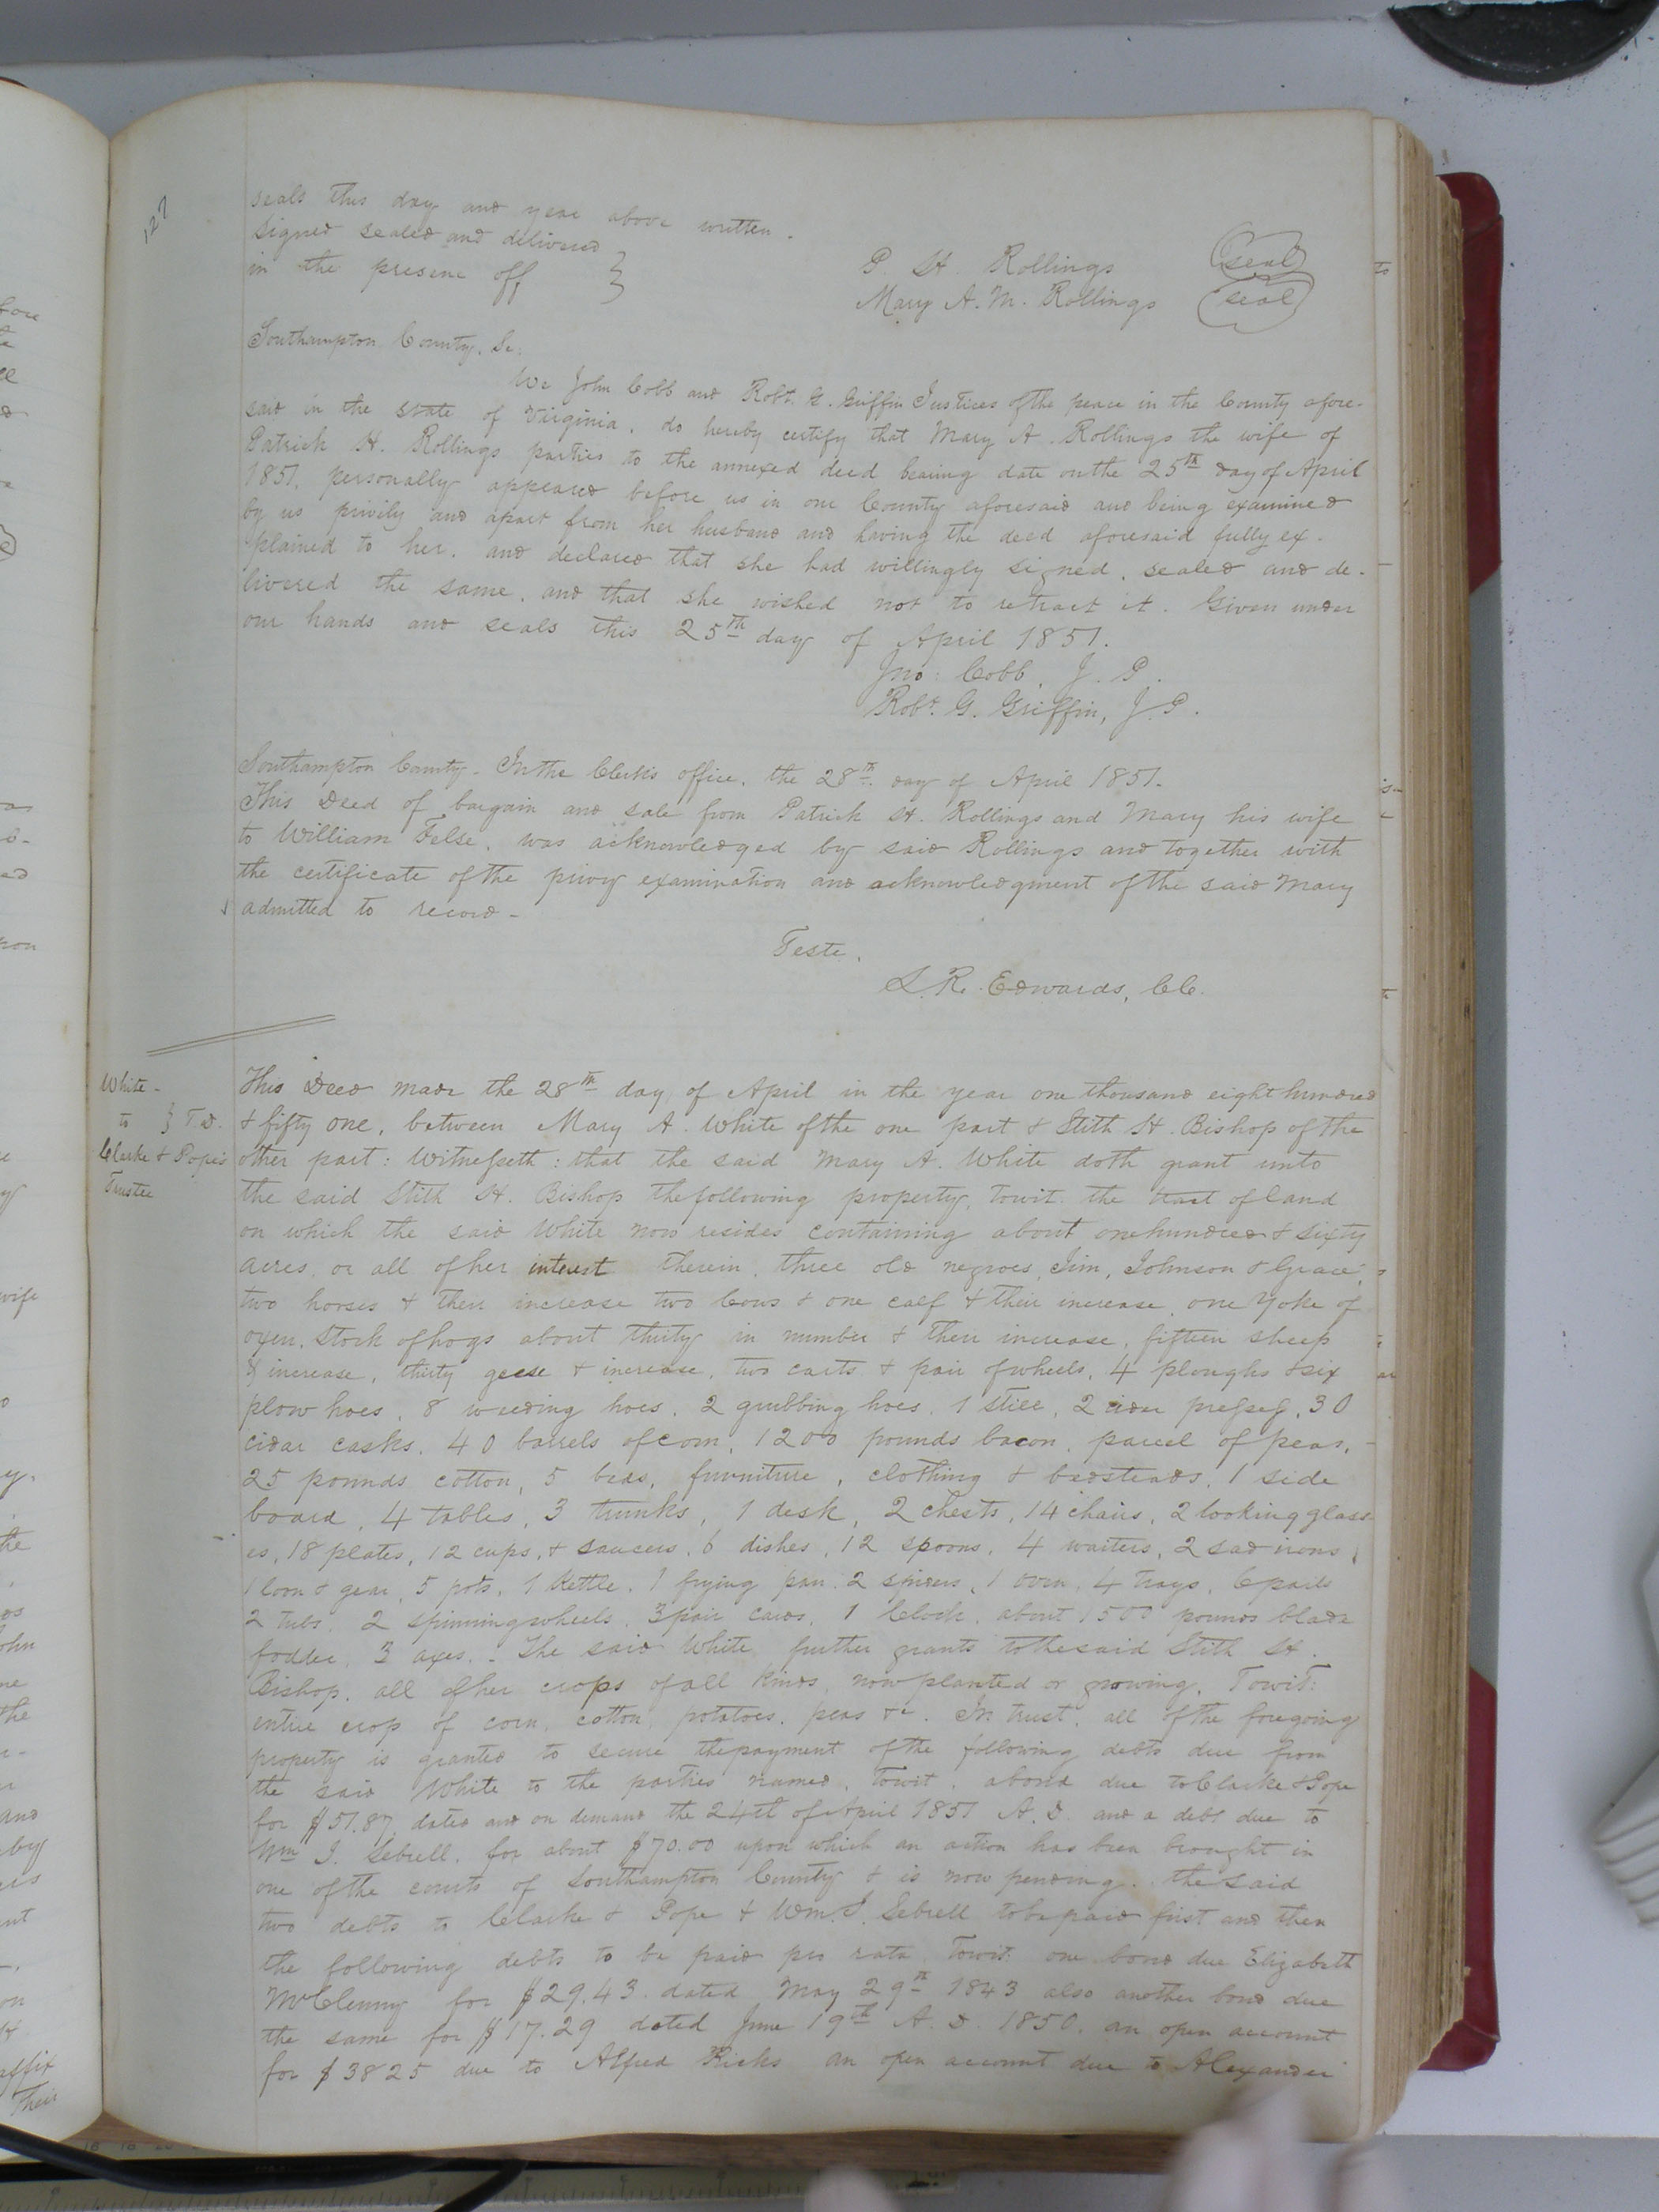 127
seals this day and year above written.
Signed sealed and delivered
in the presene off }
P. H. Rollings (seal)
Mary A. M. Rollings (seal)
Southampton County, Sc:
We John Cobb and Robt. G. Griffin Justices of the peace in the County afore-
said in the state of Virginia, do hereby certify that Mary A. Rollings the wife of
Patrick H. Rollings parties to the annexed deed bearing date on the 25th day of April
1851, personally appeared before us in our County aforesaid and being examined
by us privily and apart from her husband and having the deed aforesaid fully ex-
plained to her, and declared that she had willingly signed, sealed and de-
livered the same, and that she wished not to retract it. Given under
our hands and seals this 25th day of April 1851.
Jno: Cobb, J. P.
Robt. G. Griffin, J. P.
Southampton County. In the Clerk's office, the 28th day of April 1851.
This Deed of bargain and sale from Patrick H. Rollings and Mary his wife
to William Felse, was acknowledged by said Rollings and together with
the certificate of the privy examination and acknowledgment of the said Mary
admitted to record -
Teste,
L. R. Edwards, CC.
White -
to } T. D.
Clarke & Pope's
Trustee
This Deed made the 28th day of April in the year one thousand eight hundred
& fifty one, between Mary A. White of the one part & Stith H. Bishop of the
other part: Witnesseth: that the said Mary A. White doth grant unto
the said Stith H. Bishop the following property, towit: the tract of land
on which the said White now resides containing about one hundred & sixty
acres, or all of her interest therein, three old negroes, Jim, Johnson & Grace,
two horses & their increase two Cows & one calf & their increase, one Yoke of
oxen, Stock of hogs about thirty in number & their increase, fifteen sheep
& increase, thirty geese & increase, two carts & pair of wheels, 4 ploughs & six
plow hoes, 8 weeding hoes, 2 grubbing hoes, 1 still, 2 cider presses, 30
cidar casks, 40 barrels of corn, 1200 pounds bacon, parcel of peas,
25 pounds cotton, 5 beds, furniture, clothing & bedsteads, 1 side
board, 4 tables, 3 trunks, 1 desk, 2 chests, 14 chairs, 2 looking glass
es, 18 plates, 12 cups, & saucers, 6 dishes, 12 spoons, 4 waiters, 2 sad irons,
1 loom & gear, 5 pots, 1 Kettle, 1 frying pan, 2 spiders, 1 oven, 4 trays, 6 pails
2 tubs, 2 spinning wheels, 3 pair cards, 1 Clock, about 1500 pounds blade
fodder, 3 axes. - The said White further grants to the said Stith H.
Bishop, all of her crops of all kinds, now planted or growing, Towit:
entire crop of corn, cotton, potatoes, peas &c. In trust, all of the foregoing
property is granted to secure the payment of the following debts due from
the said White to the parties named, towit, a bond due to Clarke & Pope
for $51.87, dated and on demand the 24th of April 1851 A. D. and a debt due to
Wm J. Sebrell, for about $70.00 upon which an action has been brought in
one of the courts of Southampton County & is now pending. the said
two debts to Clarke & Pope & Wm. J. Sebrell to be paid first and then
the following debts to be paid pro rata, Towit: one bond due Elizabeth
McClenny for $29.43 dated May 29th 1843 also another bond due
the same for $17.29 dated June 19th A. D. 1850, an open account
for $38 25 due to Alfred Ricks an open account due to Alexander